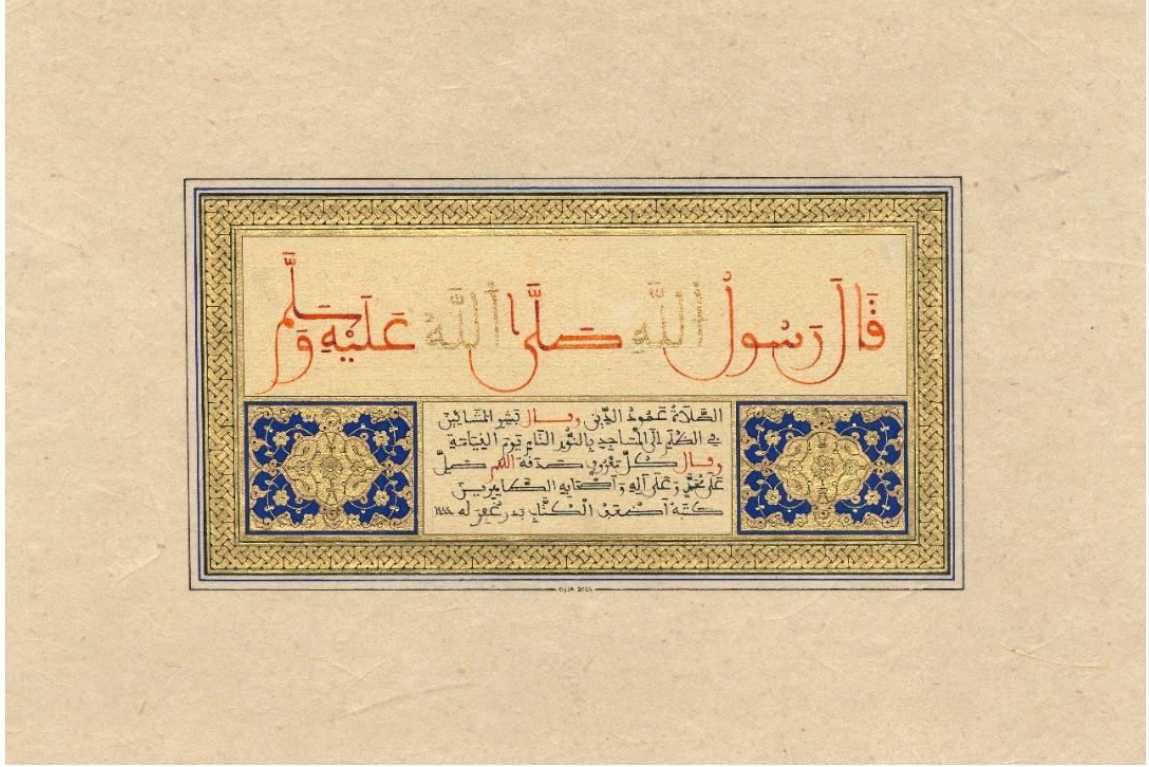 قَالَ رَسُولُ اللَّهِ صَلَّى اللَّهُ عَلَيْهِ وَسَلَّم
الصَّلَاةُ عَمُودُ الدِّينِ وقال بَشِّرِ المَشَّائِينَ
في الظُّلَمِ إلَى المَسَاجِدِ بِالنُّورِ التَّامِّ يَومَ القِيَامَةِ
وقال كُلُّ مَعْرُوفٍ صَدَقَة اللهم صَلِّ
عَلَى مُحَمَّدٍ وَعَلَى آلِهِ وَأَصْحَابِهِ الطَّاهِرِينَ
كَتَبَهُ أَضْعَفُ الْكُتَّابِ